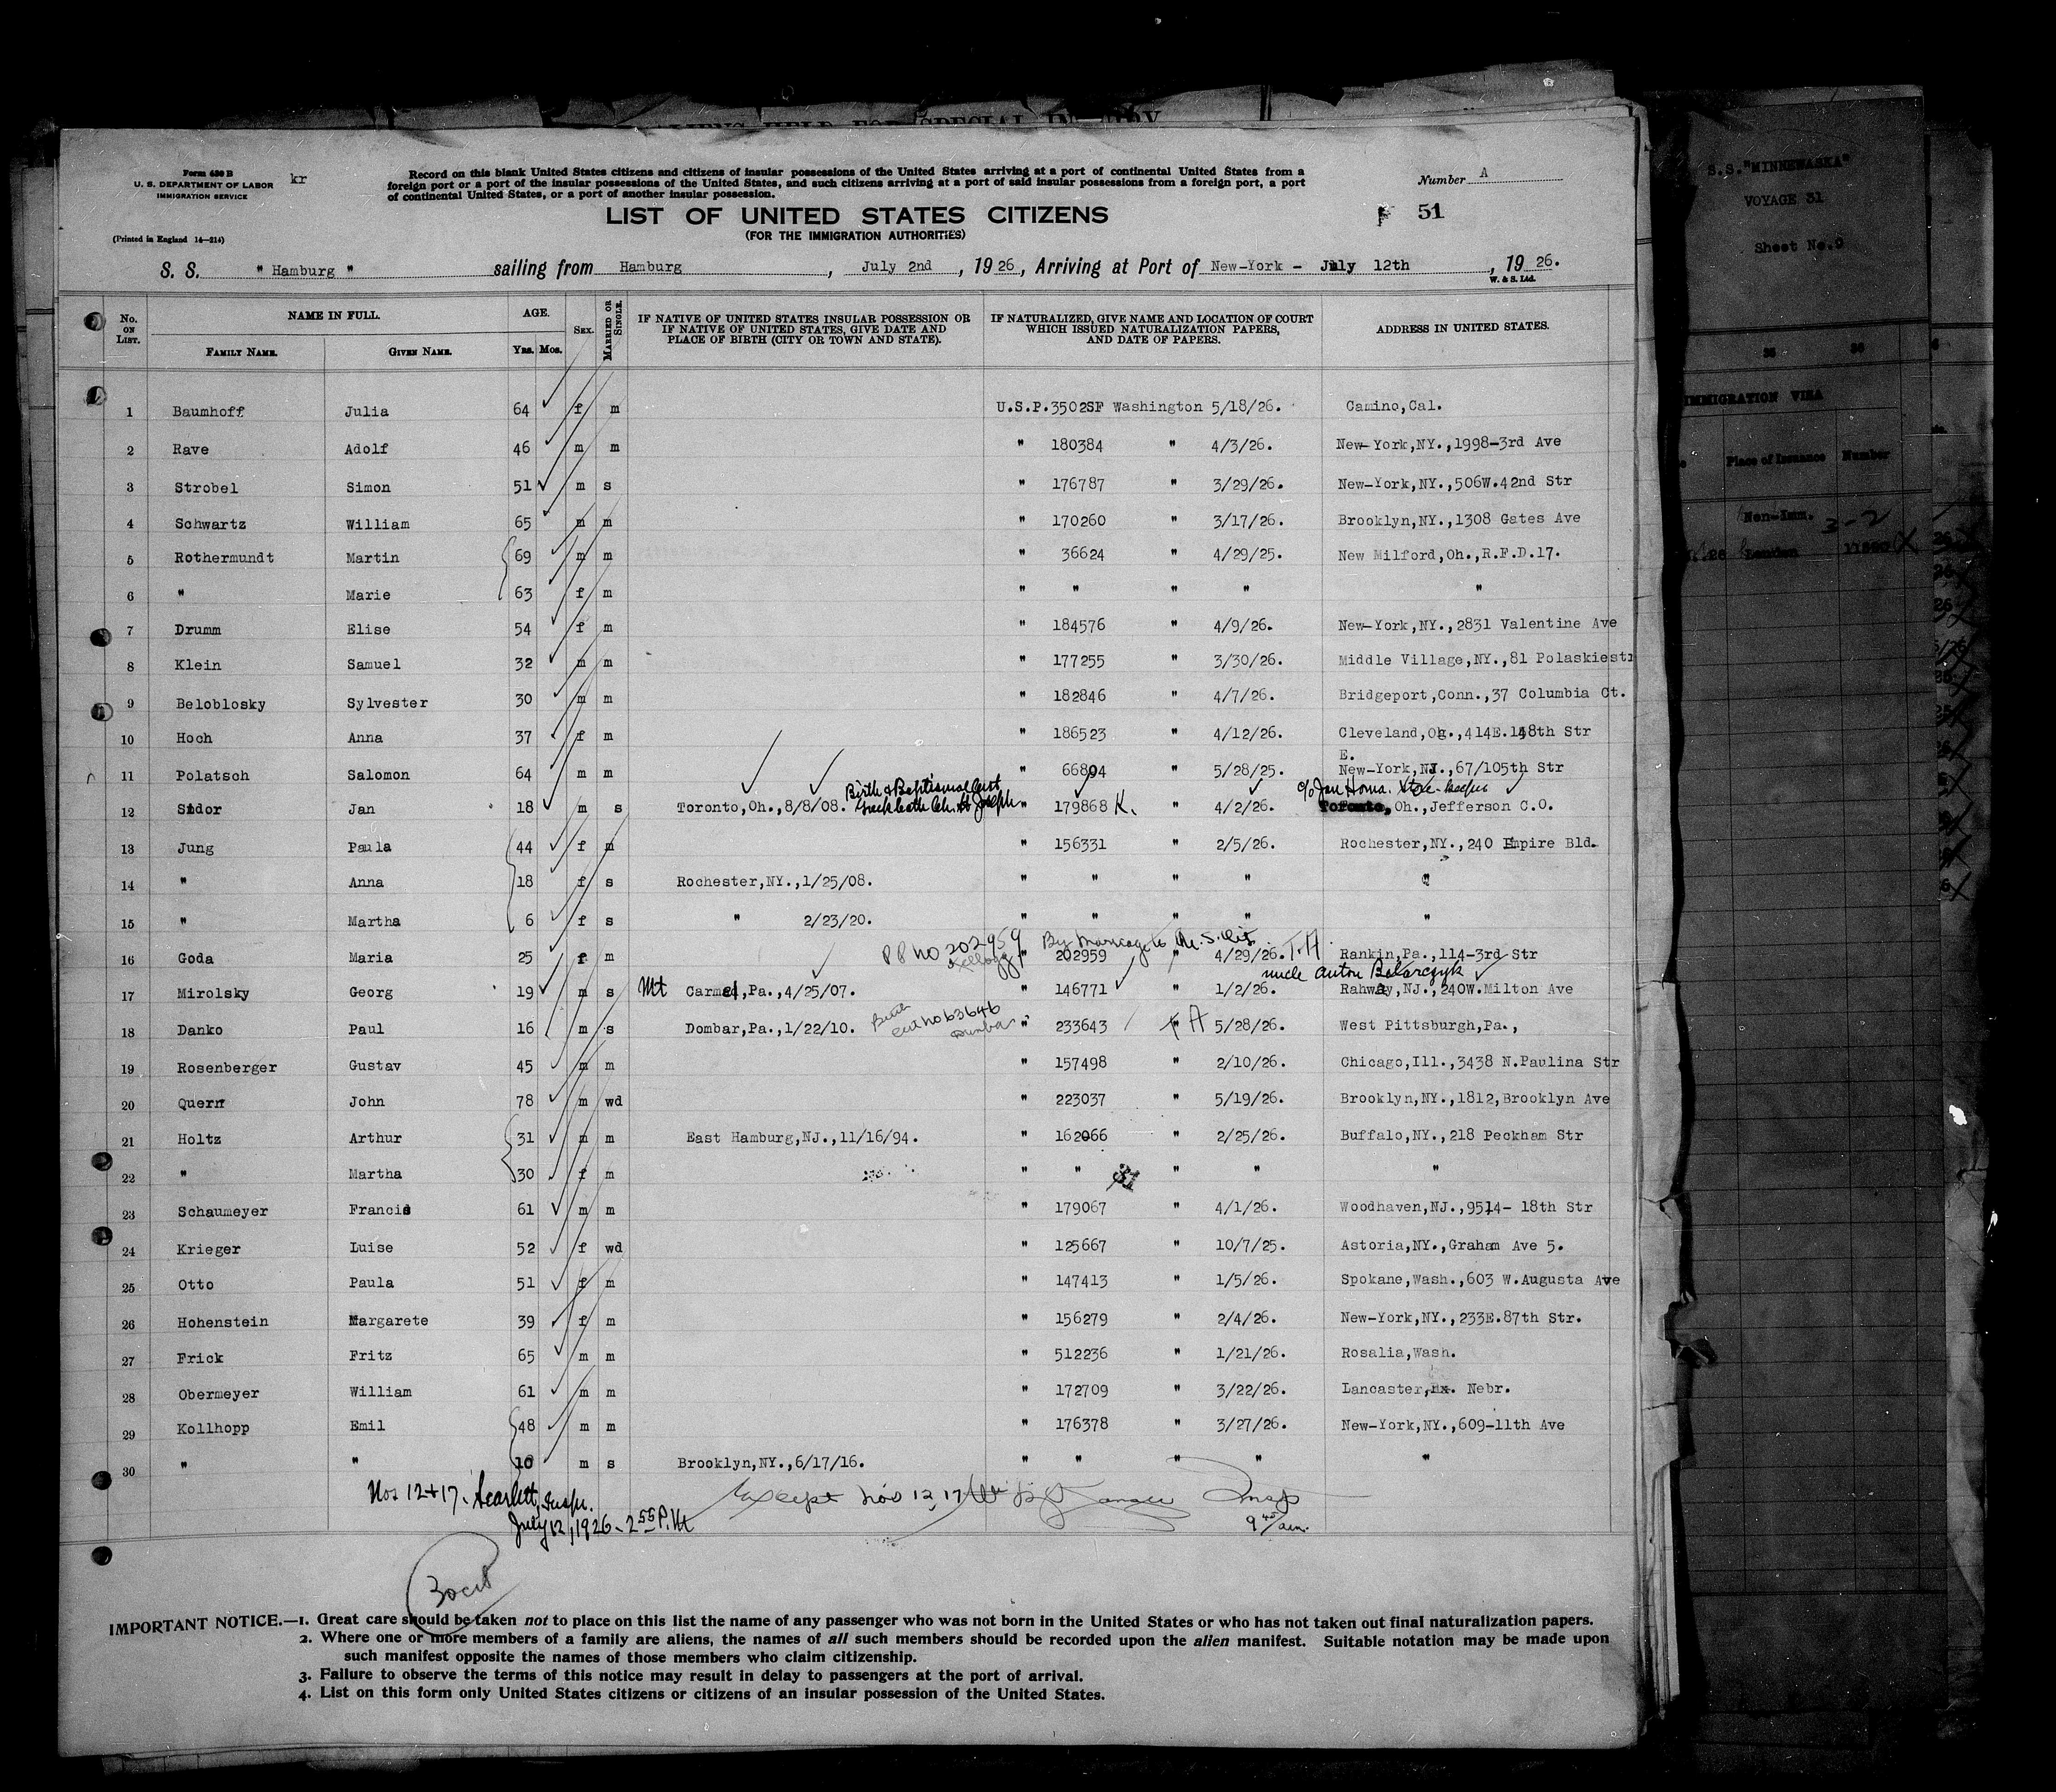 ALIENS HELD FOR SPECIAL INQUIRY
Form 630 B
U. S. DEPARTMENT OF LABOR
IMMIGRATION SERVICE
kr
(Printed in England 14—214)
Record on this blank United States citizens and citizens of insular possessions of the United States arriving at a port of continental United States from a
foreign port or a port of the insular possessions of the United States, and such citizens arriving at a port of said insular possessions from a foreign port, a port
of continental United States, or a port of another insular possession.
Number A
LIST OF UNITED STATES CITIZENS
51
(FOR THE IMMIGRATION AUTHORITIES)
S. S. " Hamburg " sailing from Hamburg , July 2nd , 19 26, Arriving at Port of New-York - July 12th , 19 26.
W. & S. Ltd.
No. ON LIST. NAME IN FULL. AGE. SEX. MARRIED OR SINGLE. IF NATIVE OF UNITED STATES INSULAR POSSESSION OR IF NATIVE OF UNITED STATES, GIVE DATE AND PLACE OF BIRTH (CITY OR TOWN AND STATE). IF NATURALIZED, GIVE NAME AND LOCATION OF COURT WHICH ISSUED NATURALIZATION PAPERS, AND DATE OF PAPERS. ADDRESS IN UNITED STATES.
FAMILY NAME. GIVEN NAME. Yrs. Mos.
1 Baumhoff Julia 64 f m U.S.P.3502SF Washington 5/18/26. Camino,Cal.
2 Rave Adolf 46 m m " 180384 " 4/3/26. New-York,NY.,1998-3rd Ave
3 Strobel Simon 51 m s " 176787 " 3/29/26. New-York,NY.,506W.42nd Str
4 Schwartz William 65 m m " 170260 " 3/17/26. Brooklyn,NY.,1308 Gates Ave
5 Rothermundt Martin 69 m m " 36624 " 4/29/25. New Milford,Oh.,R.F.D.17.
6 " Marie 63 f m " " " " "
7 Drumm Elise 54 f m " 184576 " 4/9/26. New-York,NY.,2831 Valentine Ave
8 Klein Samuel 32 m m " 177255 " 3/30/26. Middle Village,NY.,81 Polaskiestr
9 Beloblosky Sylvester 30 m m " 182846 " 4/7/26. Bridgeport,Conn.,37 Columbia Ct.
10 Hoch Anna 37 f m " 186523 " 4/12/26. Cleveland,Oh.,414E.148th Str
E.
11 Polatsch Salomon 64 m m " 66804 " 5/28/25. New-York,NJ.,67/105th Str
Birth & Baptismal Cert c/o Jan Homa. Store-keeper
12 Sidor Jan 18 m s Toronto,Oh.,8/8/08. St Joseph " 179868 K. " 4/2/26. Toronto,Oh.,Jefferson C.O.
13 Jung Paula 44 f m " 156331 " 2/5/26. Rochester,NY.,240 Empire Bld.
14 " Anna 18 f s Rochester,NY.,1/25/08. " " " " "
15 " Martha 6 f s " 2/23/20. " " " " "
PP no 202959 By Marriage to U.S. Cit. T.A.
16 Goda Maria 25 f m Kellogg " 202959 " 4/29/26. Rankin,Pa.,114-3rd Str
uncle Anton Belarczyk
17 Mirolsky Georg 19 m s Mt Carmel,Pa.,4/25/07. " 146771 " 1/2/26. Rahway,NJ.,240W.Milton Ave
Birth
cert no 63646
18 Danko Paul 16 m s Dombar,Pa.,1/22/10. Dunbar " 233643 " A 5/28/26. West Pittsburgh,Pa.,
19 Rosenberger Gustav 45 m m " 157498 " 2/10/26. Chicago,Ill.,3438 N.Paulina Str
20 Quern John 78 m wd " 223037 " 5/19/26. Brooklyn,NY.,1812,Brooklyn Ave
21 Holtz Arthur 31 m m East Hamburg,NJ.,11/16/94. " 162066 " 2/25/26. Buffalo,NY.,218 Peckham Str
22 " Martha 30 f m " " 31 " " "
23 Schaumeyer Francis 61 m m " 179067 " 4/1/26. Woodhaven,NJ.,9514- 18th Str
24 Krieger Luise 52 f wd " 125667 " 10/7/25. Astoria,NY.,Graham Ave 5.
25 Otto Paula 51 f m " 147413 " 1/5/26. Spokane,Wash.,603 W.Augusta Ave
26 Hohenstein Margarete 39 f m " 156279 " 2/4/26. New-York,NY.,233E.87th Str.
27 Frick Fritz 65 m m " 512236 " 1/21/26. Rosalia,Wash.
28 Obermeyer William 61 m m " 172709 " 3/22/26. Lancaster, Nebr.
29 Kollhopp Emil 48 m m " 176378 " 3/27/26. New-York,NY.,609-11th Ave
30 " " 10 m s Brooklyn,NY.,6/17/16. " " " " "
Nos 12+17. Scarlett, Inspr. Except Nos 12, 17 Insp
July 12, 1926 - 2 55 P.M 9 45/am.
30 cit
IMPORTANT NOTICE.—1. Great care should be taken not to place on this list the name of any passenger who was not born in the United States or who has not taken out final naturalization papers.
2. Where one or more members of a family are aliens, the names of all such members should be recorded upon the alien manifest. Suitable notation may be made upon
such manifest opposite the names of those members who claim citizenship.
3. Failure to observe the terms of this notice may result in delay to passengers at the port of arrival.
4. List on this form only United States citizens or citizens of an insular possession of the United States.
S.S."MINNEWASKA"
VOYAGE 31
Sheet No.9
35 36
IMMIGRATION VISA
Place of Issuance Number
Non-Imm. 3-2
London